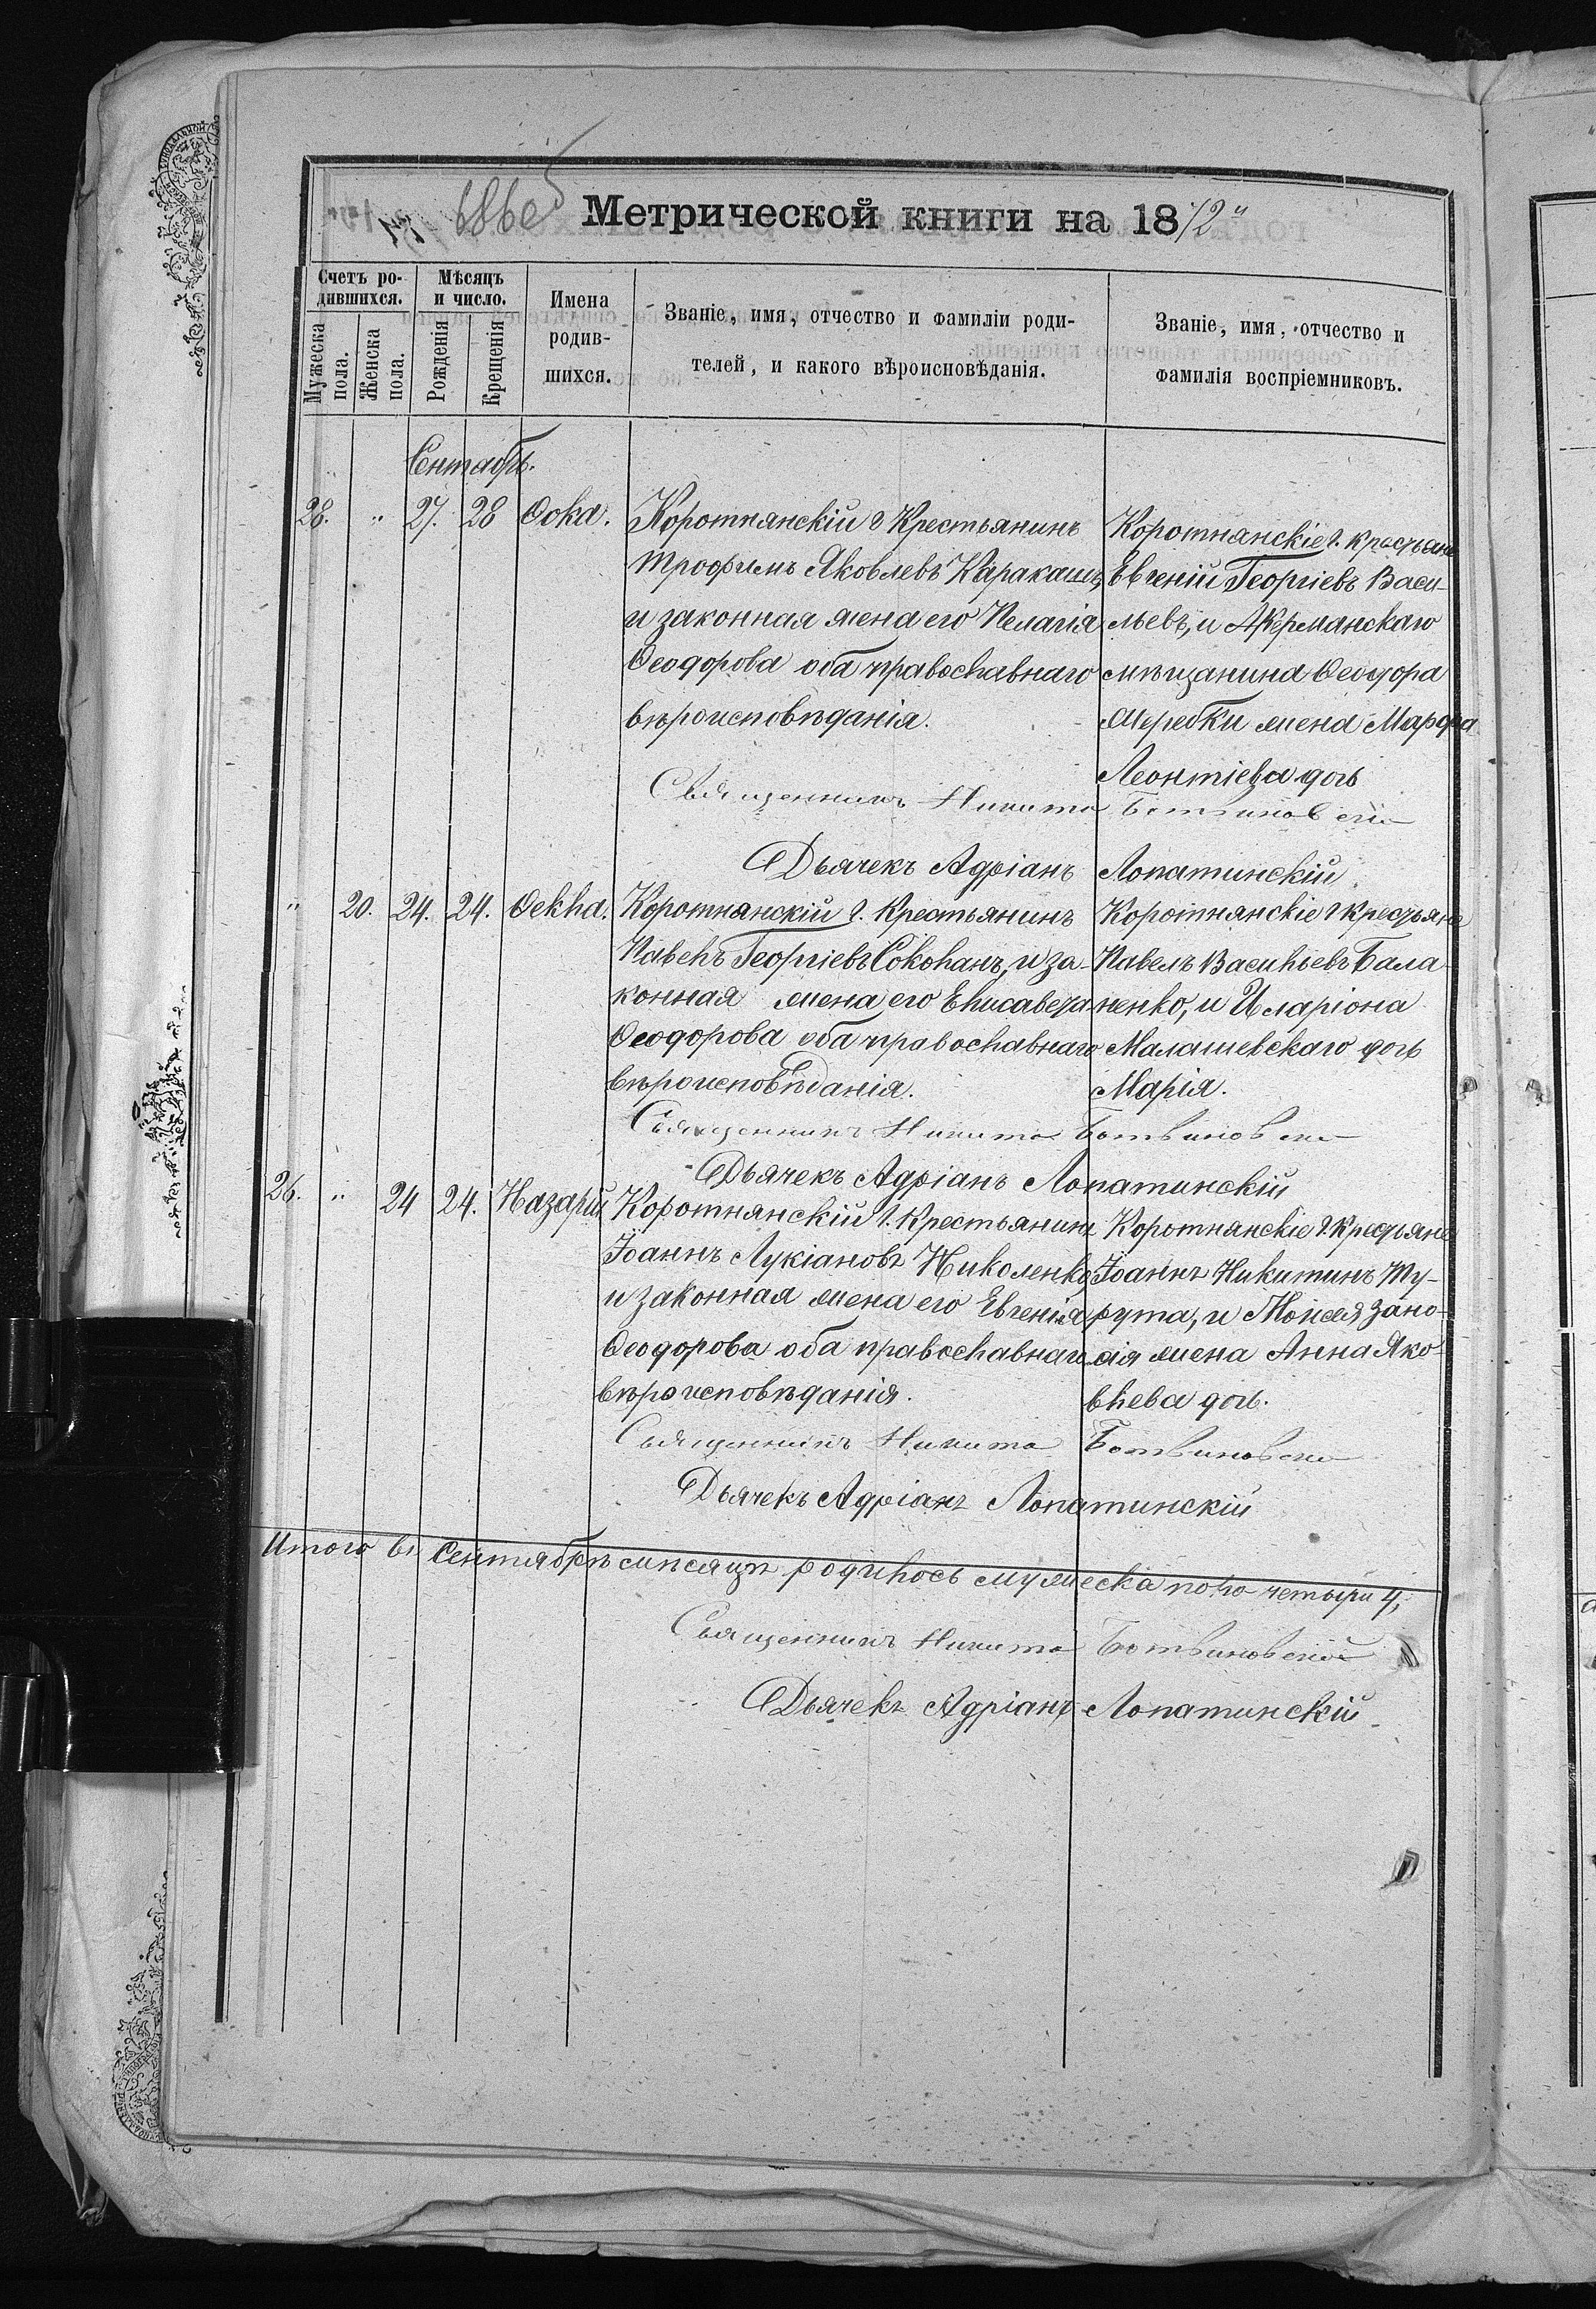 686об Метрической книги на 1872й
Счетъ ро-
дившихся.
Мужеска
пола.
Женска
пола.
Мѣсяцъ
и число.
Рожденія
Крещенія
Имена
родив-
шихся.
Званіе, имя, отчество и фамиліи роди-
телей, и какого вѣроисповѣданія.
Званіе, имя, отчество и
фамилія воспріемниковъ.
Сентябрь.
28. " 27. 28 Ѳока.
Коротнянскій г. Крестьянинъ
Трофимъ Яковлевъ Каракашъ,
и законная жена его Пелагія
Ѳеодорова оба православнаго
вѣроисповѣданія.
Коротнянскіе г. крестьяне
Евгеній Георгіевъ Васи-
льевъ, и Аккерманскаго
мѣщанина Ѳеодора
жена Марфа
Леонтіева дочь
Священникъ Никита Ботвиновскій
Дьячекъ Адріанъ Лопатинскій
" 20. 24. 24. Ѳекла.
Коротнянскій г. Крестьянинъ
Павелъ Георгіевъ Соколанъ, и за-
конная жена его Елисавета
Ѳеодорова оба православнаго
вѣроисповѣданія.
Коротнянскіе г крестьяне
Павелъ Васильевъ Бала-
ненко, и Иларіона
Малашевскаго дочь
Марія.
Священникъ Никита Ботвиновскій
Дьячекъ Адріанъ Лопатинскій
26. " 24 24. Назарій
Коротнянскій г. Крестьянинъ
Іоаннъ Лукіановъ Николенко
и законная жена его Евгенія
Ѳеодорова оба православнаго
вѣроисповѣданія.
Коротнянскіе г. крестьяне
Іоаннъ Никитинъ Ту-
рута, и Моисея Зано-
сія жена Анна Яко-
влева дочь.
Священникъ Никита Ботвиновскій
Дьячекъ Адріанъ Лопатинскій
Итого въ Сентябрѣ мѣсяцѣ родилось мужеска поло четыри 4,
Священникъ Никита Ботвиновскій
Дьячекъ Адріанъ Лопатинскій